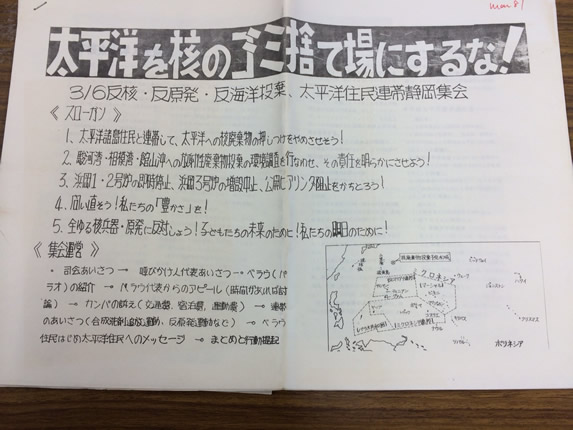 Mar. 81
太平洋を核のゴミ捨て場にするな!
3/6反核・反原発・反海洋投棄、太平洋住民連帯静岡集会
《 スローガン 》
1、太平洋諸島住民と連帯して、太平洋への核廃棄物の押しつけをやめさせよう!
2、駿河湾・相模湾・館山沖への放射性廃棄物投棄の環境調査を行なわせ、その責任を明らかにさせよう!
3、浜岡1・2号炉の即時停止、浜岡3号炉の増設中止、公開ヒアリング阻止をかちとろう!
4、問い直そう!私たちの「豊かさ」を!
5、全ゆる核兵器・原発に反対しよう!子どもたちの未来のために!私たちの明日のために!
《 集会運営 》
・ 司会あいさつ → 呼びかけ人代表あいさつ → ベラウ(パ
ラオ)の紹介 → ベラウ代表からのアピール(時間があれば討
論) → カンパの訴え(交通費、宿泊費、運動費) → 連帯
のあいさつ(合成洗剤追放運動、反原発運動など) → ベラウ
住民はじめ太平洋住民へのメッセージ → まとめと行動提起
ミクロネシア
ポリネシア